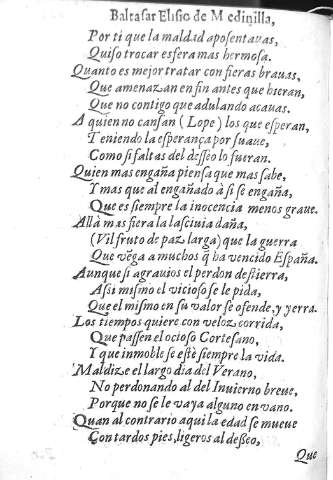 Baltasar Elisio de Medinilla,
Por ti que la maldad aposentauas,
Quiso trocar esfera mas hermosa.
Quanto es mejor tratar con fieras brauas,
Que amenazan en fin antes que hieran,
Que no contigo que adulando acauas.
A quien no cansan (Lope) los que esperan,
Teniendo la esperança por suaue,
Como si faltas del desseo lo fueran.
Quien mas engaña piensa que mas sabe,
Y mas que al engañado à si se engaña,
Que es siempre la inocencia menos graue.
Allà mas fiera la lasciuia daña,
(Vil fruto de paz larga) que la guerra
Que vẽga a muchos q̃ ha vencido España.
Aunque si agrauios el perdon destierra,
Assi mismo el vicioso se le pida,
Que el mismo en su valor se ofende, y yerra.
Los tiempos quiere con veloz corrida,
Que passen el ocioso Cortesano,
Y que inmoble se estè siempre la vida.
Maldize el largo dia del Verano,
No perdonando al del Inuierno breue,
Porque no se le vaya alguno en vano.
Quan al contrario aqui la edad se mueue
Con tardos pies, ligeros al desseo,
Que